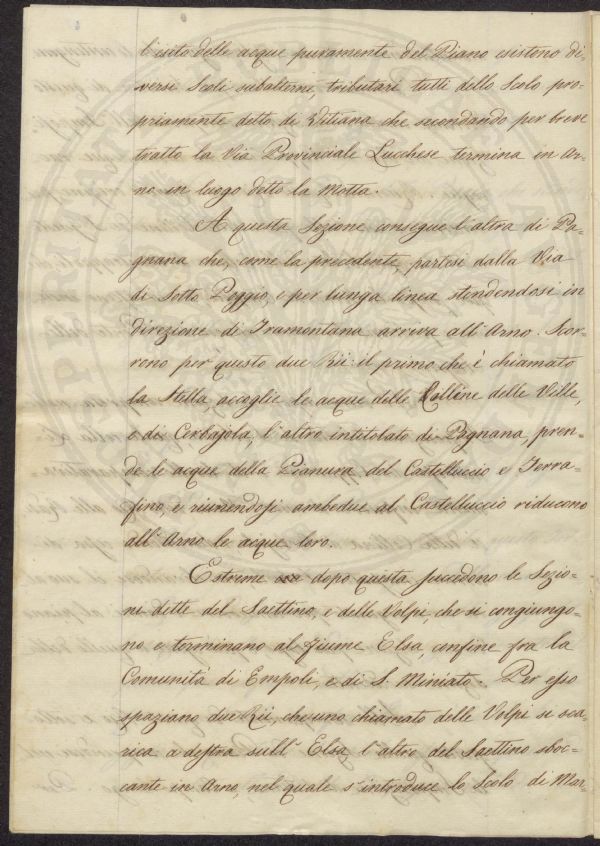 l'esito delle acque puramente del Piano esistono di-
versi Scoli subalterni, tributari tutti dello Scolo pro-
priamente detto di Vitiana che secondando per breve
tratto la Via Provinciale Lucchese termina in Ar-
no in luogo detto la Motta.
A questa Sezione consegue l'altra di Pa-
gnana che, come la precedente, partesi dalla Via
di Sotto Poggio, e per lunga linea stendendosi in
direzione di Tramontana arriva all'Arno. Scor-
rono per questo due Rii: il primo che è chiamato
la Stella, accoglie le acque delle Colline delle Ville,
e di Cerbajola, l'altro intitolato di Pagnana, pren-
de le acque della Pianura del Castelluccio e Terra-
fino, e riunendosi ambedue al Castelluccio riducono
all'Arno le acque loro.
Estreme dopo questa succedono le Sezio-
ni dette del Saettino, e delle Volpi, che si congiungo-
no e terminano al fiume Elsa, confine fra la
Comunità di Empoli, e di S. Miniato. Per esso
spaziano due Rii, che uno chiamato delle Volpi si sca-
rica a destra sull'Elsa l'altro del Saettino sboc-
cante in Arno, nel quale s'introduce lo Scolo di Mar-